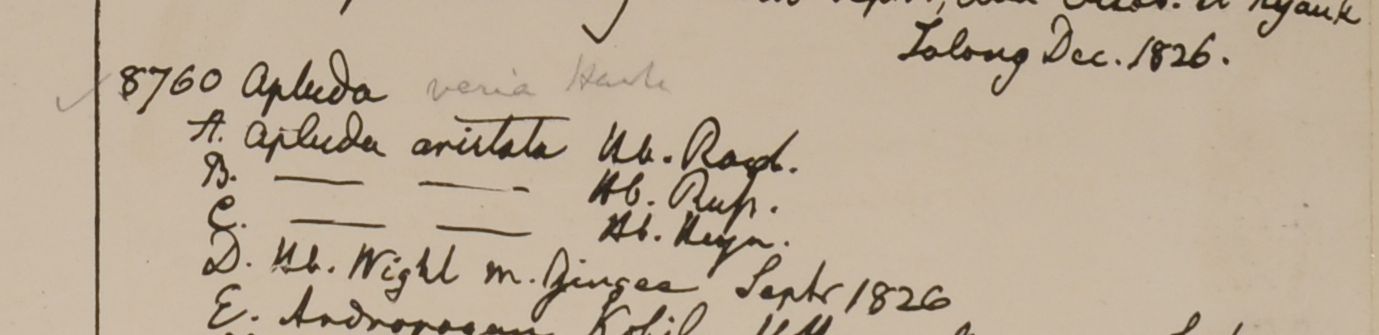 Kyouk
Tolong Dec. 1826.
8760 Apluda varia Hack
A. Apluda aristata Hb. Roxb.
B. — — Hb. Rup.
C. — — Hb. Heyn.
D. Hb. Wight m. Gingee Septr 1826
E. Andropogon